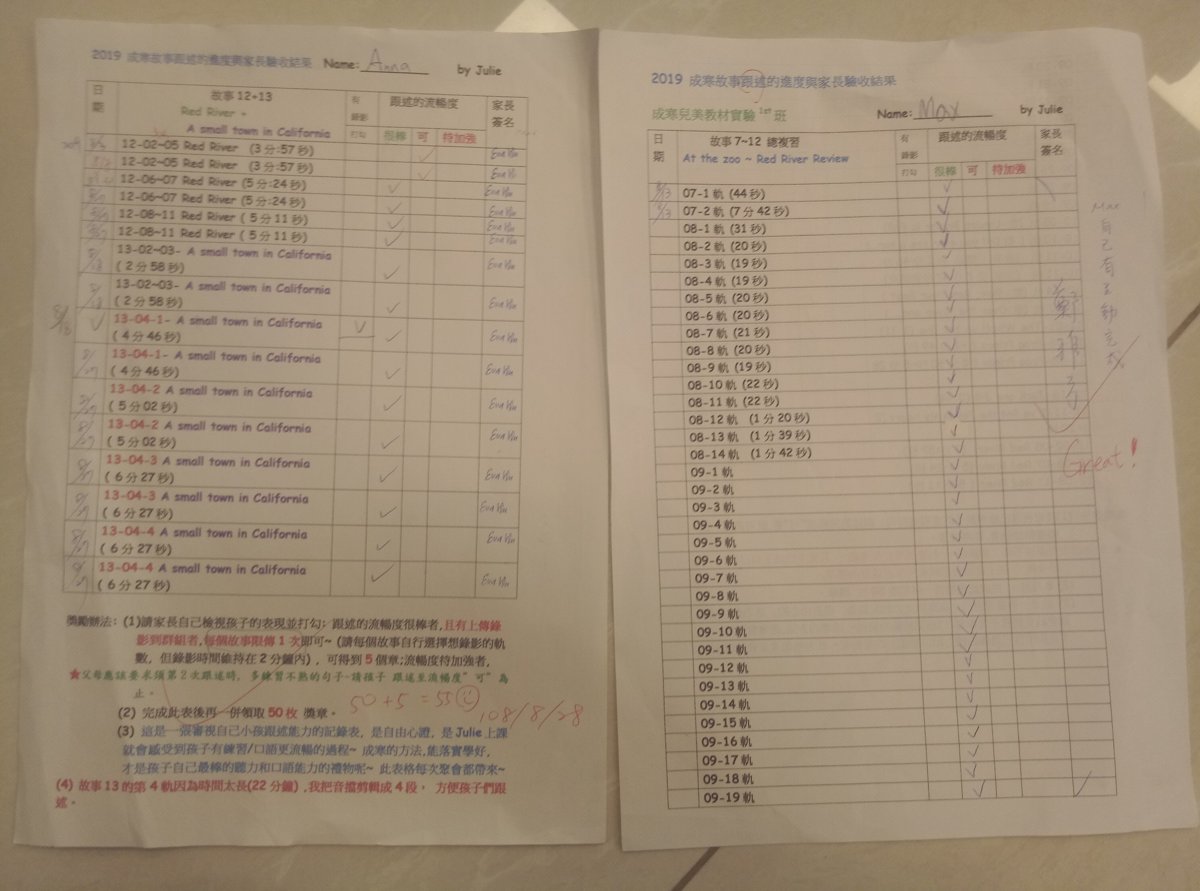 2019 成寒故事跟述的進度與家長驗收結果 Name: Anna by Julie
日期 故事 12+13 有 跟述的流暢度 家長簽名
Red River + 錄影
A small town in California 打勾 很棒 可 待加強
12-02~05 Red River (3 分:57 秒) ✓ Eva Wu
12-02~05 Red River (3 分:57 秒) ✓ Eva Wu
12-06~07 Red River (5 分:24 秒) ✓ Eva Wu
12-06~07 Red River (5 分:24 秒) ✓ Eva Wu
12-08~11 Red River ( 5 分 11 秒) ✓ Eva Wu
12-08~11 Red River ( 5 分 11 秒) ✓ Eva Wu
13-02~03- A small town in California
( 2 分 58 秒) ✓ Eva Wu
13-02~03- A small town in California
( 2 分 58 秒) ✓ Eva Wu
8/13 ✓ 13-04-1- A small town in California ✓
( 4 分 46 秒) ✓ Eva Wu
8/27 13-04-1- A small town in California
( 4 分 46 秒) ✓ Eva Wu
8/27 13-04-2 A small town in California
( 5 分 02 秒) ✓ Eva Wu
8/27 13-04-2 A small town in California
( 5 分 02 秒) ✓ Eva Wu
8/27 13-04-3 A small town in California
( 6 分 27 秒) ✓ Eva Wu
8/27 13-04-3 A small town in California
( 6 分 27 秒) ✓ Eva Wu
8/27 13-04-4 A small town in California
( 6 分 27 秒) ✓ Eva Wu
8/27 13-04-4 A small town in California
( 6 分 27 秒) ✓ Eva Wu
獎勵辦法: (1)請家長自己檢視孩子的表現並打勾; 跟述的流暢度很棒者,且有上傳錄
影到群組者,每個故事限傳 1 次即可~ (請每個故事自行選擇想錄影的軌
數, 但錄影時間維持在 2 分鐘內) , 可得到 5 個章;流暢度待加強者,
★父母應該要求須第 2 次跟述時, 多練習不熟的句子-請孩子 跟述至流暢度" 可" 為
止。
50+5 = 55
(2) 完成此表後再一併領取 50 枚 獎章。
108/8/28
(3) 這是一張審視自己小孩跟述能力的記錄表, 是自由心證, 是 Julie 上課
就會感受到孩子有練習/口語更流暢的過程~ 成寒的方法,能落實學好,
才是孩子自己最棒的聽力和口語能力的禮物呢~ 此表格每次聚會都帶來~
(4) 故事 13 的第 4 軌因為時間太長(22 分鐘) ,我把音擋剪輯成 4 段, 方便孩子們跟
述。
2019 成寒故事跟述的進度與家長驗收結果
成寒兒美教材實驗 1st 班 Name: Max by Julie
日期 故事 7~12 總複習 有 跟述的流暢度 家長簽名
At the zoo ~ Red River Review 錄影
打勾 很棒 可 待加強
8/13 07-1 軌 (44 秒) ✓
8/13 07-2 軌 (7 分 42 秒) ✓
08-1 軌 (31 秒) ✓
08-2 軌 (20 秒) ✓
08-3 軌 (19 秒) ✓
08-4 軌 (19 秒) ✓
08-5 軌 (20 秒) ✓
08-6 軌 (20 秒) ✓
08-7 軌 (21 秒) ✓
08-8 軌 (20 秒) ✓
08-9 軌 (19 秒) ✓
08-10 軌 (22 秒) ✓
08-11 軌 (22 秒) ✓
08-12 軌 (1 分 20 秒) ✓
08-13 軌 (1 分 39 秒) ✓
08-14 軌 (1 分 42 秒) ✓
09-1 軌 ✓
09-2 軌 ✓
09-3 軌 ✓
09-4 軌 ✓
09-5 軌 ✓
09-6 軌 ✓
09-7 軌 ✓
09-8 軌 ✓
09-9 軌 ✓
09-10 軌 ✓
09-11 軌 ✓
09-12 軌 ✓
09-13 軌 ✓
09-14 軌 ✓
09-15 軌 ✓
09-16 軌 ✓
09-17 軌 ✓
09-18 軌 ✓
09-19 軌 ✓ ✓
Max 自己有
Great!